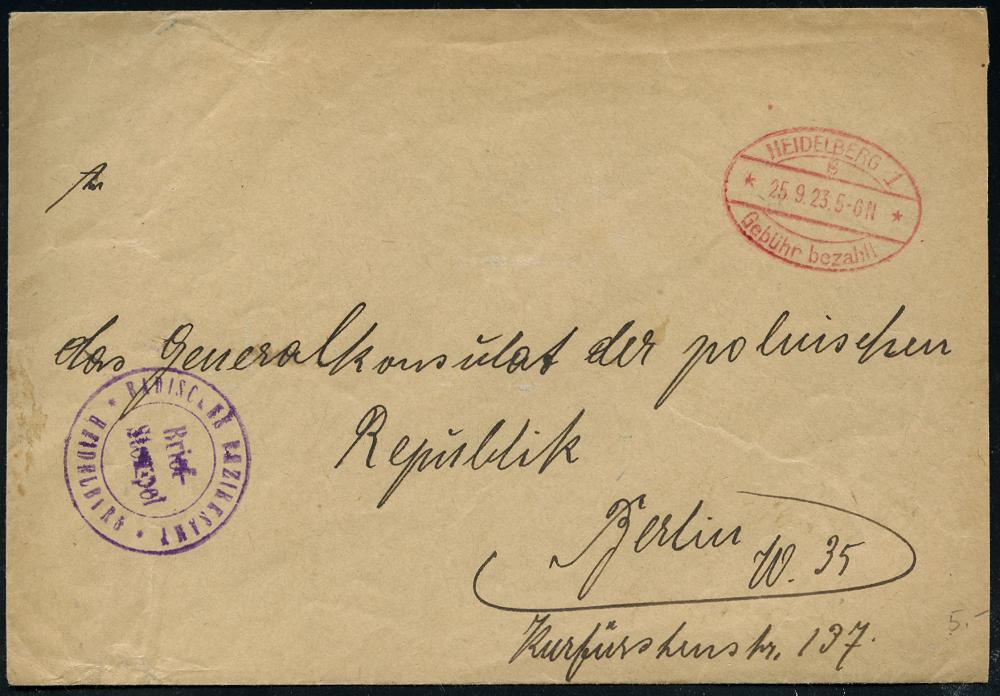 HEIDELBERG 1
B
25.9.23.5-6N
Gebühr bezahlt
An
das Generalkonsulat der polnischen
Republik
Berlin
W. 35
Kurfürstenstr. 137.
BADISCHES BEZIRKSAMT
HEIDELBERG
Brief-
Stempel
5.-